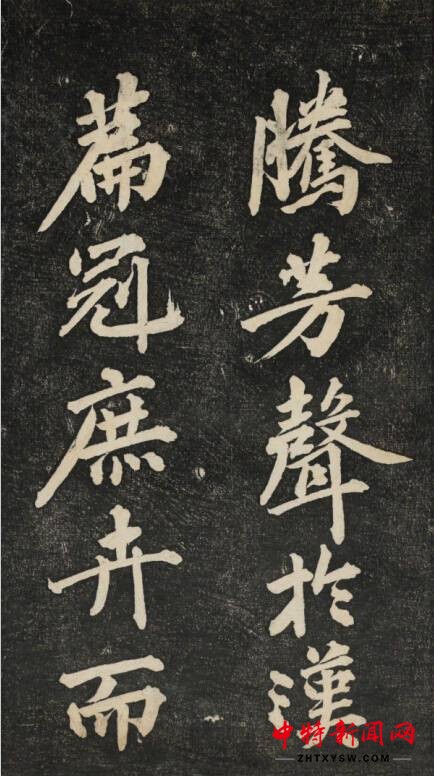 騰芳聲於漢
萹冠庶卉而
中特新闻网
ZHTXYSW.COM